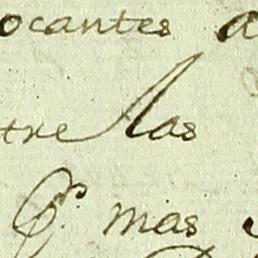 ocantes a
tre las
mas